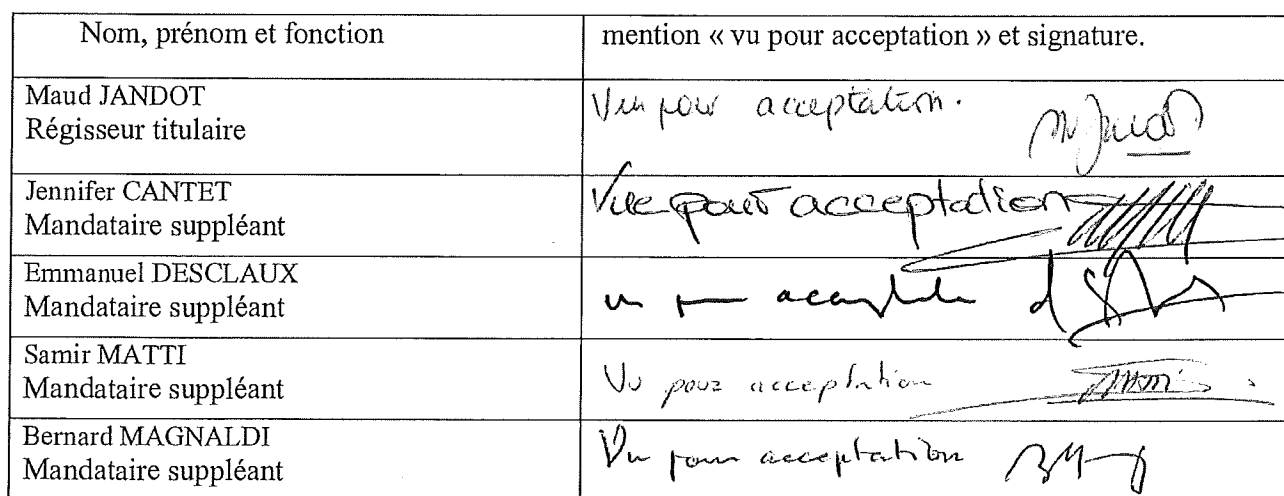 Nom, prénom et fonction
mention « vu pour acceptation » et signature.
Maud JANDOT
Régisseur titulaire
Vu pour acceptation.
Jennifer CANTET
Mandataire suppléant
Vue pour acceptation
Emmanuel DESCLAUX
Mandataire suppléant
Samir MATTI
Mandataire suppléant
Vu pour acceptation
Bernard MAGNALDI
Mandataire suppléant
Vu pour acceptation